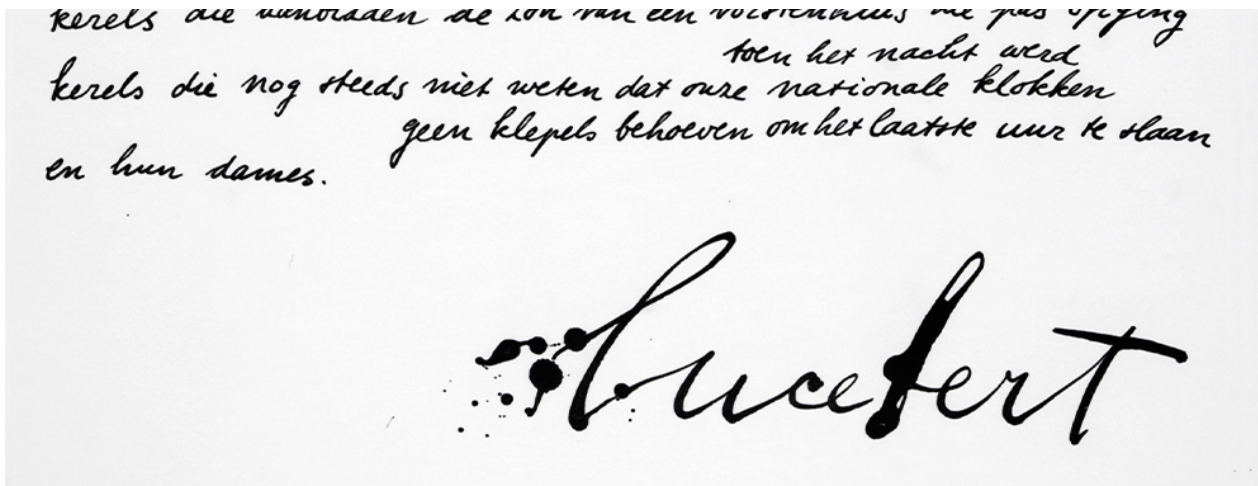 kerels die aanbidden de zon van een vorstenhuis die pas opging
toen het nacht werd
kerels die nog steeds niet weten dat onze nationale klokken
geen klepels behoeven om het laatste uur te slaan
en hun dames.
lucebert